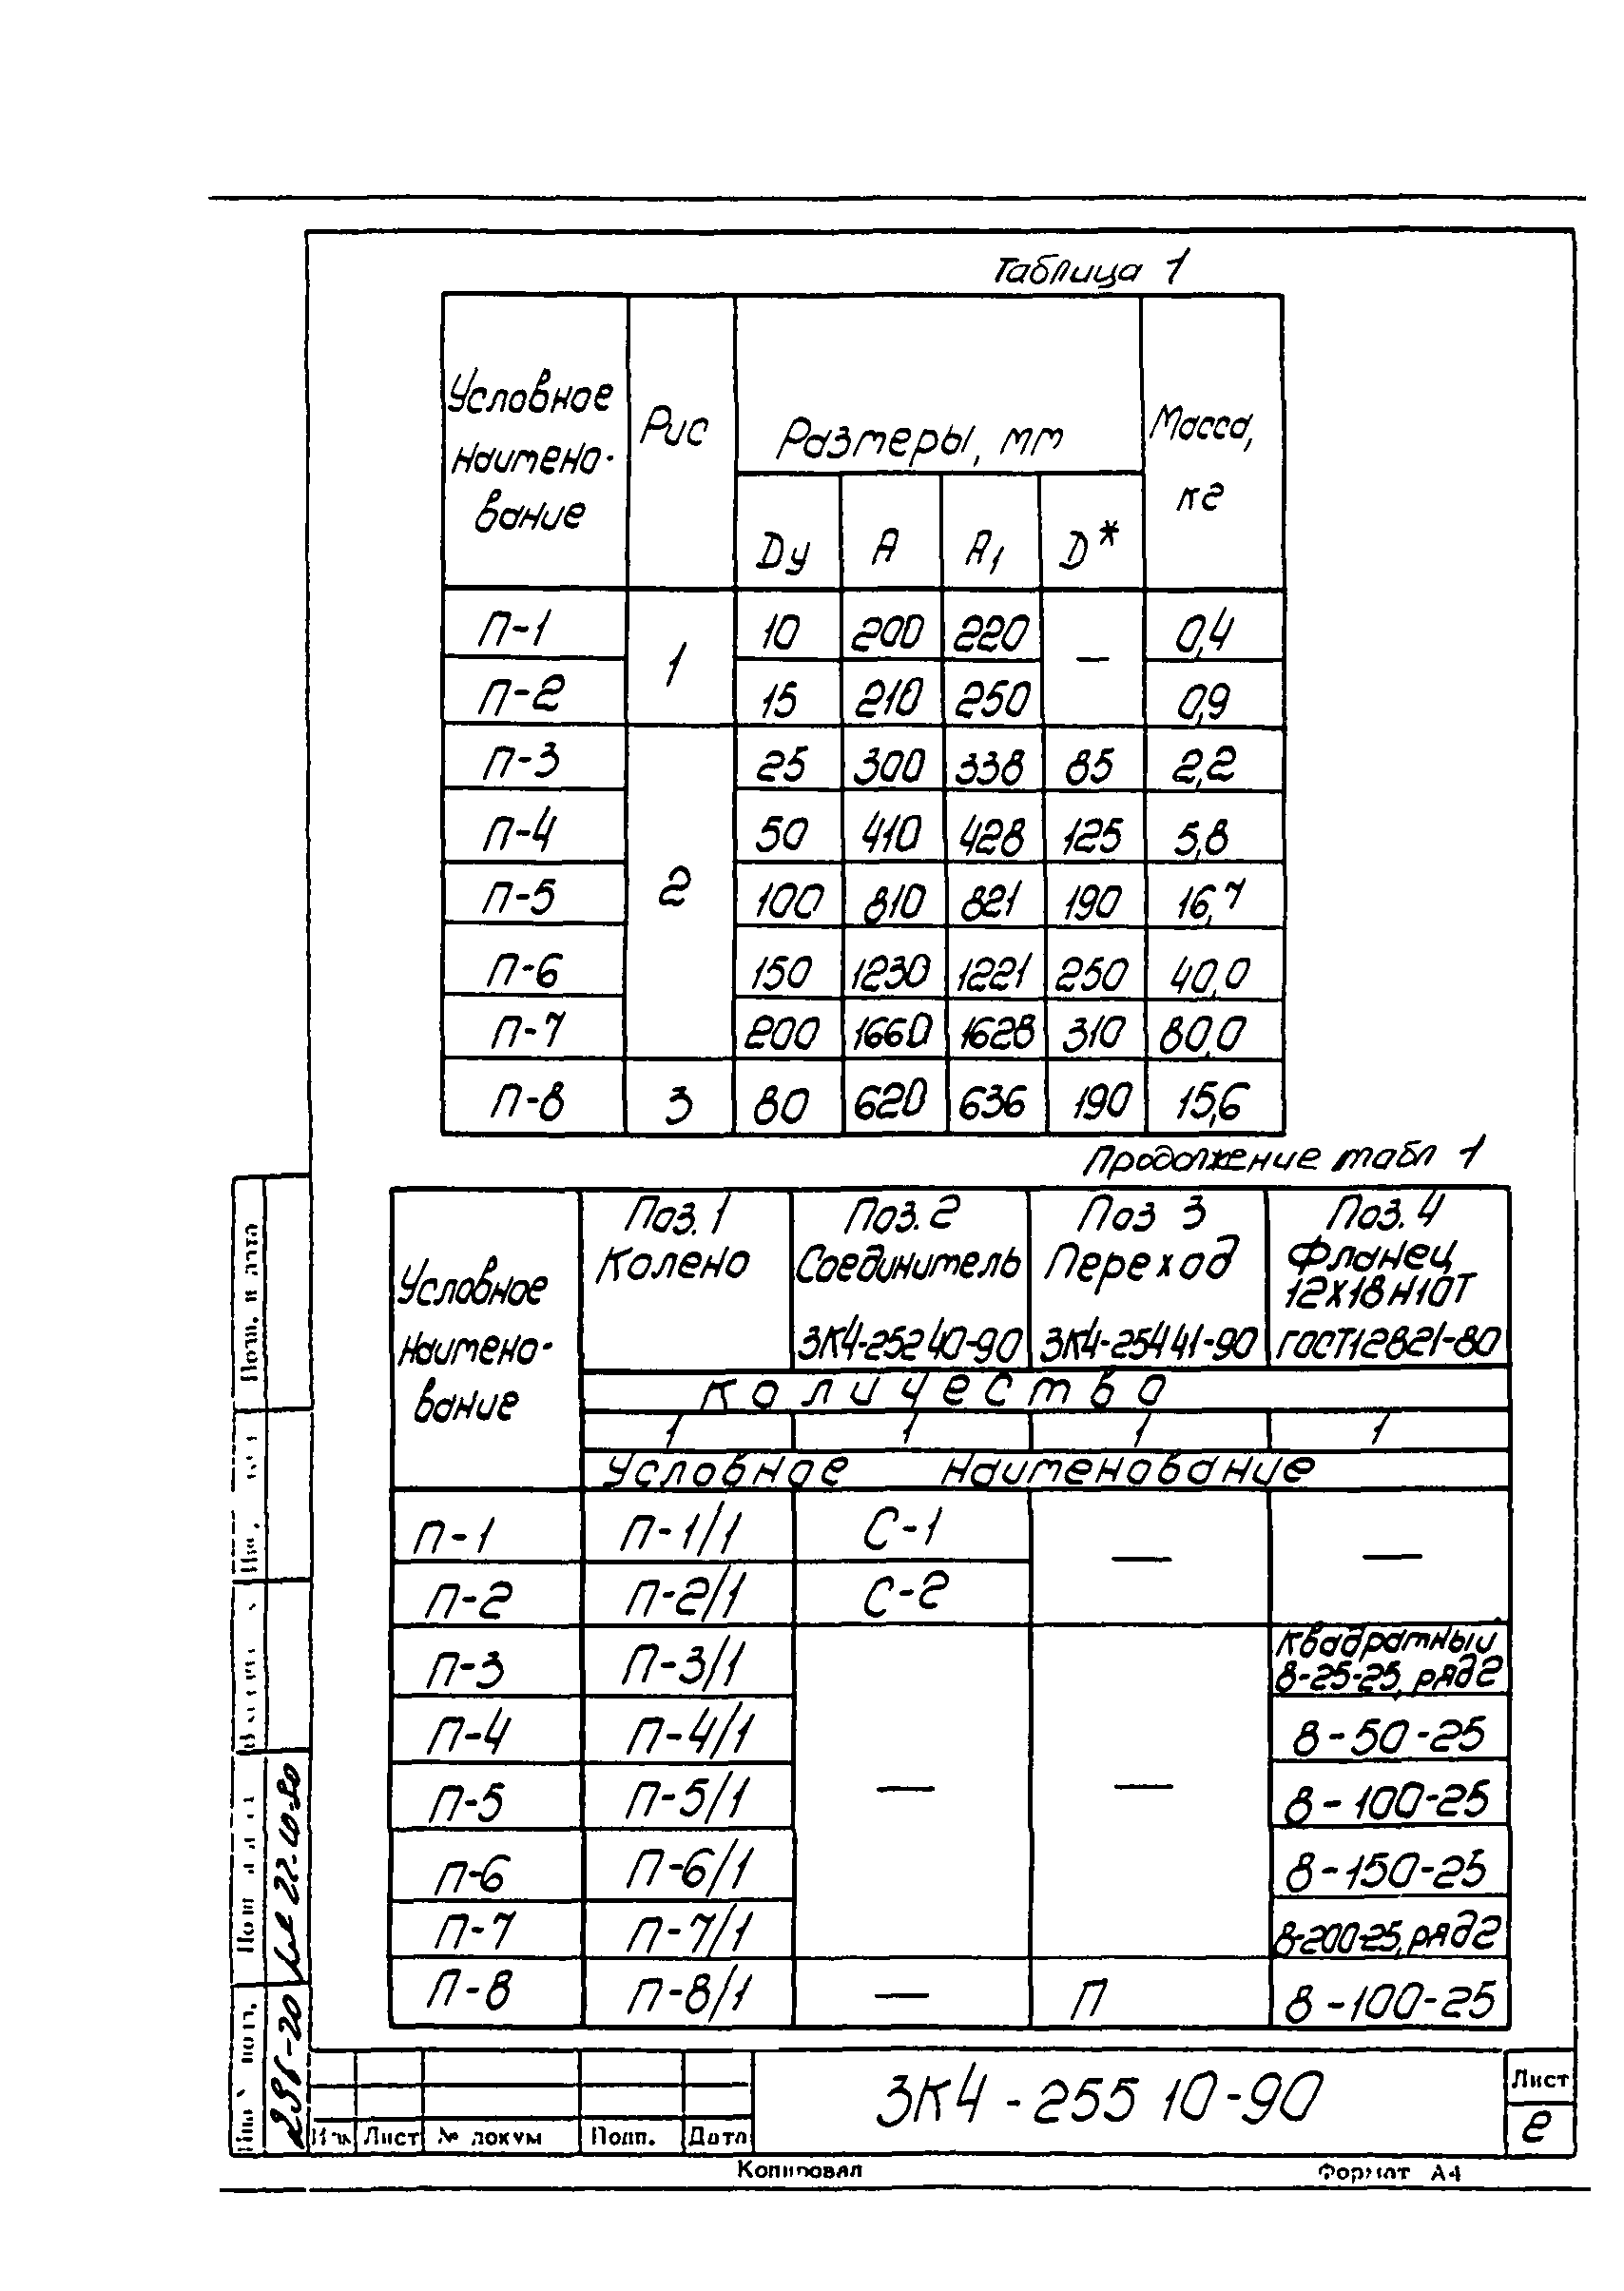 Таблица 1
Условное наимено-вание Рис Размеры, мм Масса, кг
Dу А А1 D*
П-1 1 10 200 220 — 0,4
П-2 15 210 250 0,9
П-3 2 25 300 338 85 2,2
П-4 50 410 428 125 5,8
П-5 100 810 821 190 16,7
П-6 150 1230 1221 250 40,0
П-7 200 1660 1628 310 80,0
П-8 3 80 620 636 190 15,6
Продолжение табл 1
Условное наимено-вание
Поз. 1 Поз. 2 Поз 3 Поз. 4
Колено Соединитель Переход Фланец
12Х18Н10Т
ЗК4-25240-90 ЗК4-25441-90 ГОСТ12821-80
Количество
1 1 1 1
Условное наименование
П-1 П-1/1 С-1 — —
П-2 П-2/1 С-2
П-3 П-3/1 — — квадратный
8-25-25, ряд 2
П-4 П-4/1 8-50-25
П-5 П-5/1 8-100-25
П-6 П-6/1 8-150-25
П-7 П-7/1 8-200-25, ряд 2
П-8 П-8/1 — П 8-100-25
Подп. и дата
22-10-90
296-20
ЗК4-25510-90
Лист
2
Изм Лист № докум Подп. Дата
Копировал Формат А4